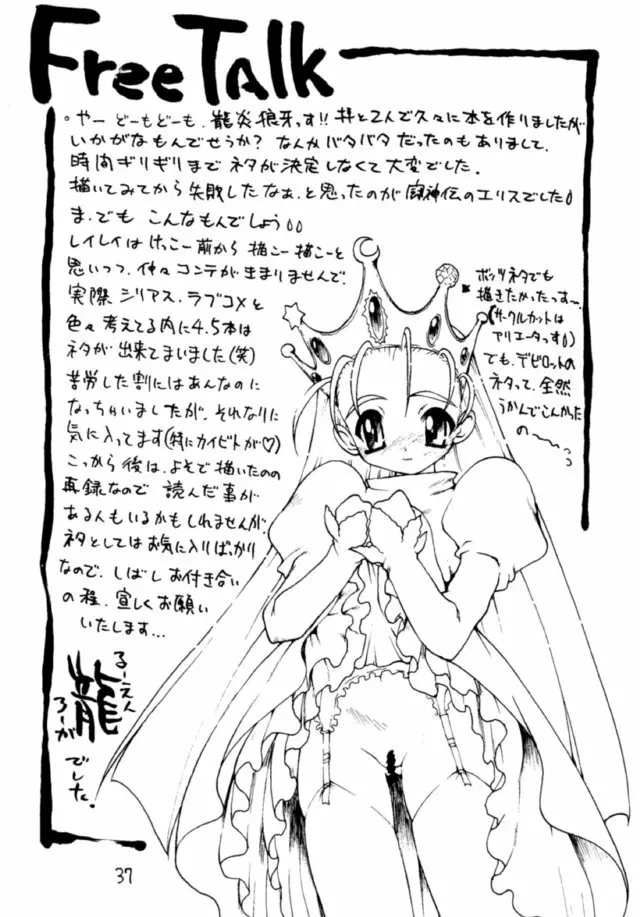 Free Talk
・やー どーもどーも、龍炎狼牙っす!! 拝と2人で久々に本を作りましたが
いかがなもんでせうか? なんかバタバタだったのもありまして、
時間ギリギリまで ネタが決定しなくて大変でした。
描いてみてから失敗したなぁ、と思ったのが 闘神伝のエリスでした
ま、でも こんなもんでしょう
レイレイは けっこー前から 描こー描こーと
思いつつ、仲々コンテがきまりませんで、
実際 シリアス、ラブコメと
色々考えてる内に 4、5本は
ネタが出来てまいました(笑)
苦労した割にはあんなのに
なっちゃいましたが、それなりに
気に入ってます(特にカイビトが♡)
こっから後は、よそで描いたのの
再録なので 読んだ事が
ある人もいるかもしれませんが、
ネタとしてはお気に入りばっかり
なので、しばしお付き合い
の程、宜しくお願い
いたします…
るーえん
龍
ろーが
でした。
ボッツネタでも
描きたかったっすー、
(サークルカットは
アリエータっす)
でも、デビロットの
ネタって、全然
うかんでこんかった
の〜〜っっ
37